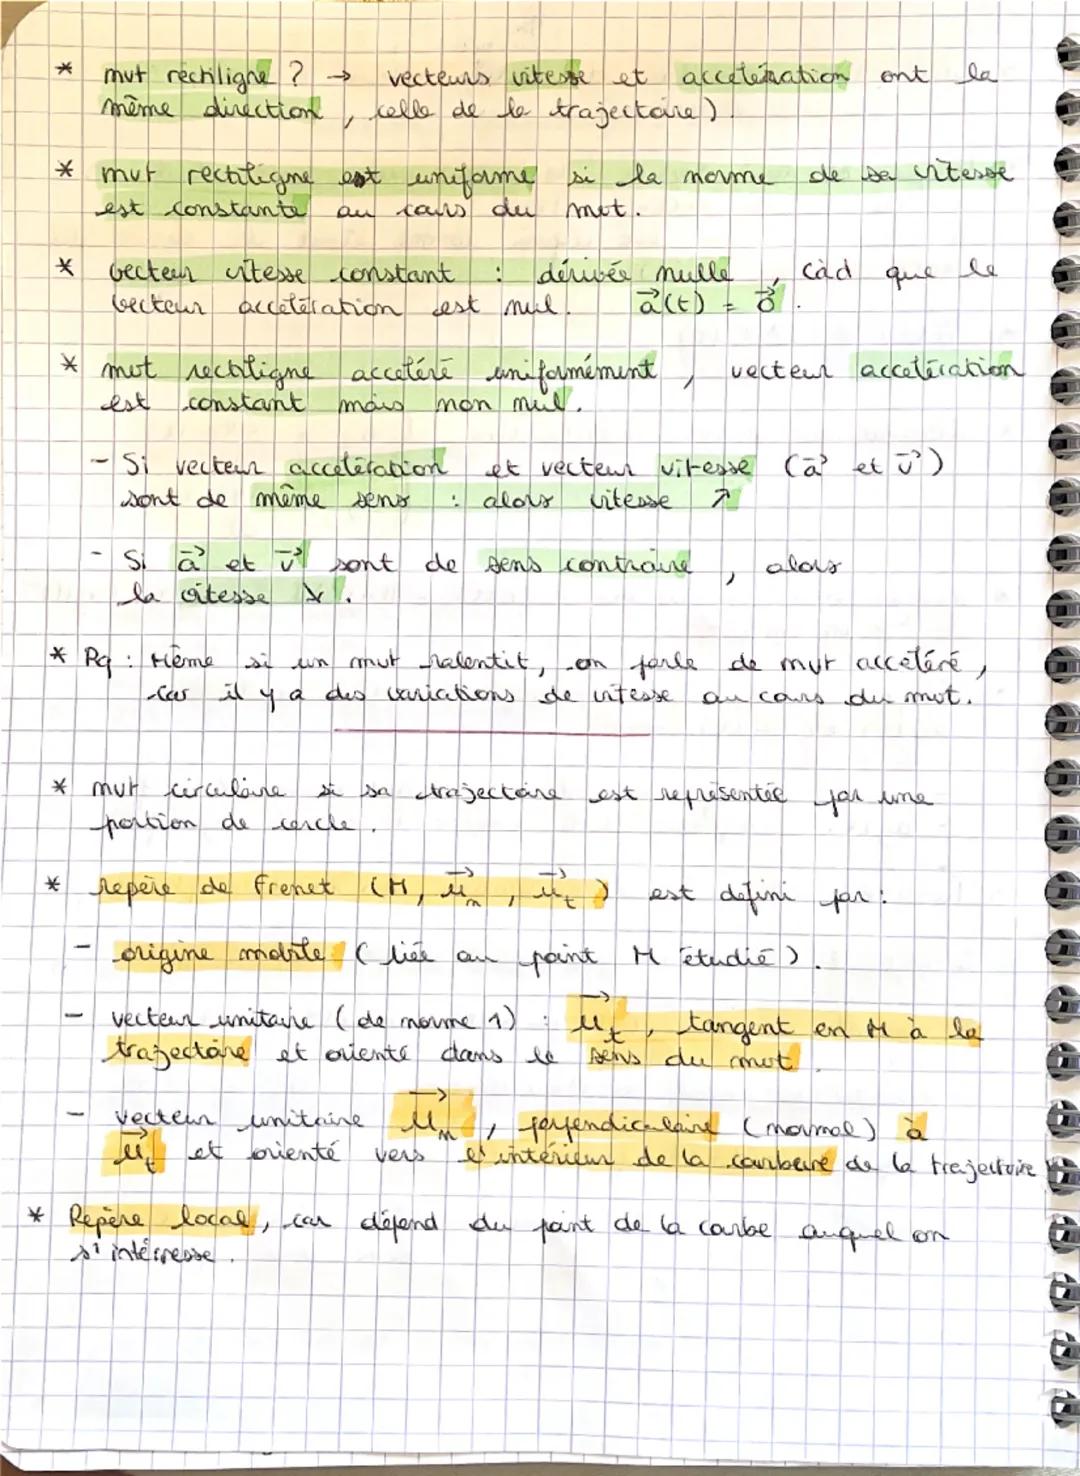 * mvt rectiligne ? → vecteurs vitesse et accélération ont la
même direction, celle de la trajectoire).
* mvt rectiligne est uniforme si la norme de sa vitesse
est constante au cours du mvt.
* Vecteur vitesse constant : dérivée nulle, càd que le
vecteur accélération est nul. a⃗(t) = 0⃗.
* mvt rectiligne accéléré uniformément, vecteur accélération
est constant mais non nul.
- Si vecteur accélération et vecteur vitesse (a⃗ et v⃗)
sont de même sens : alors vitesse ↗
- Si a⃗ et v⃗ sont de sens contraire, alors
la vitesse ↘.
* Rq : Même si un mvt ralentit, on parle de mvt accéléré,
car il y a des variations de vitesse au cours du mvt.
* mvt circulaire si sa trajectoire est représentée par une
portion de cercle.
* repère de Frenet (M, u⃗n, u⃗t) est défini par :
- origine mobile (liée au point M étudié).
- vecteur unitaire (de norme 1) : u⃗t, tangent en M à la
trajectoire et orienté dans le sens du mvt.
- vecteur unitaire u⃗n, perpendiculaire (normal) à
u⃗t et orienté vers l'intérieur de la courbure de la trajectoire
* Repère local, car dépend du point de la courbe auquel on
s'intéresse.